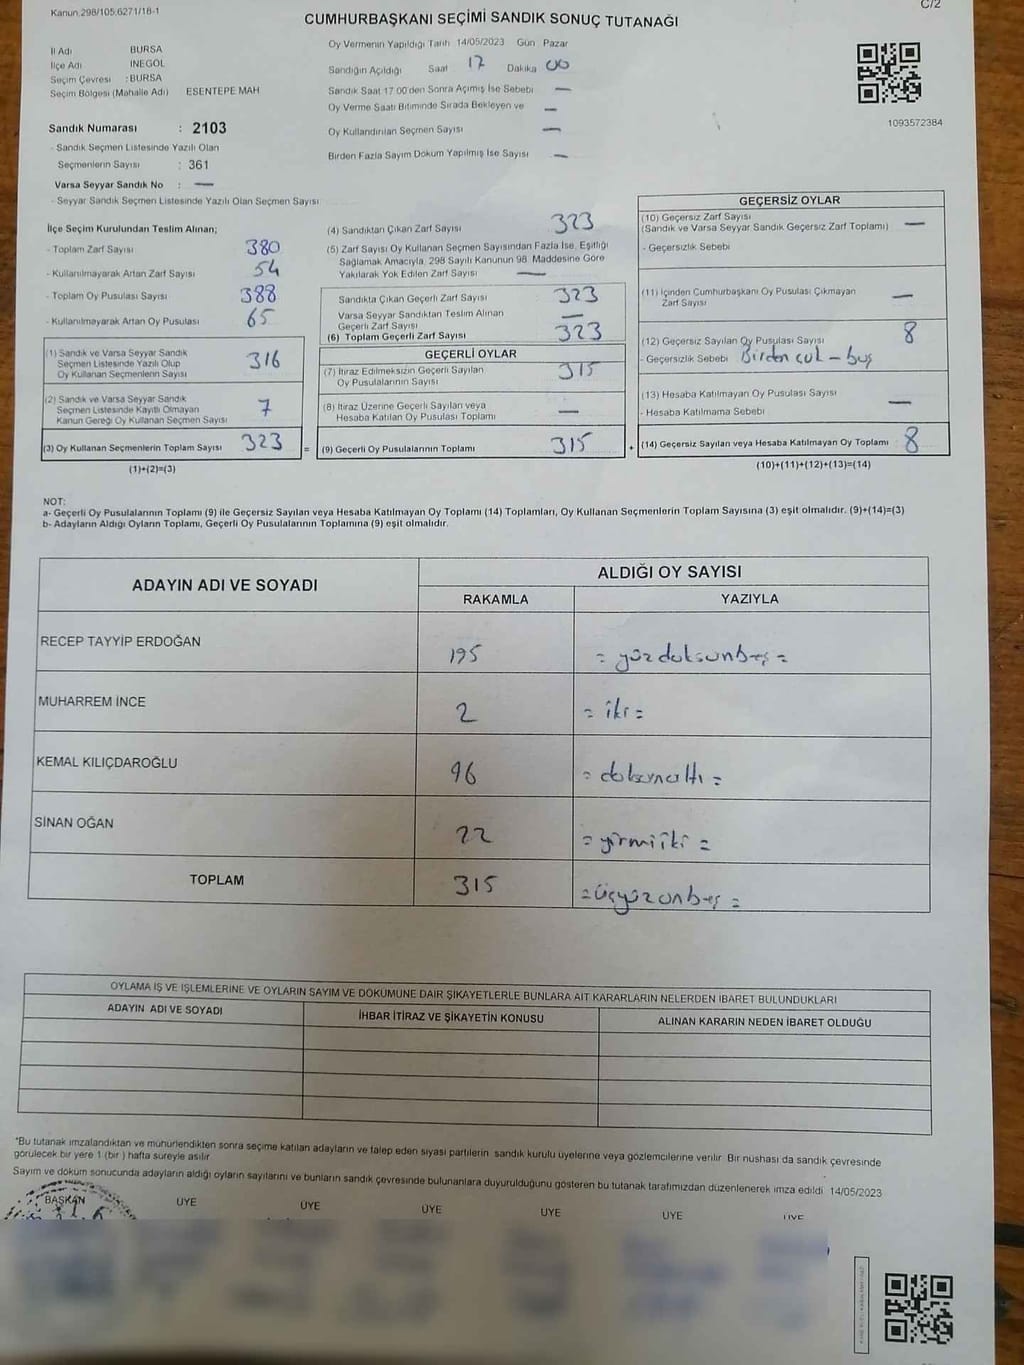 Kanun.298/105.6271/18-1
C/2
CUMHURBAŞKANI SEÇİMİ SANDIK SONUÇ TUTANAĞI
İl Adı BURSA
İlçe Adı İNEGÖL
Seçim Çevresi : BURSA
Seçim Bölgesi (Mahalle Adı) ESENTEPE MAH
Oy Vermenin Yapıldığı Tarih 14/05/2023 Gün Pazar
Sandığın Açıldığı Saat 17 Dakika 00
Sandık Saat 17 00'den Sonra Açılmış İse Sebebi —
Oy Verme Saati Bitiminde Sırada Bekleyen ve —
Oy Kullandırılan Seçmen Sayısı —
Birden Fazla Sayım Döküm Yapılmış İse Sayısı —
1093572384
Sandık Numarası : 2103
- Sandık Seçmen Listesinde Yazılı Olan
Seçmenlerin Sayısı : 361
Varsa Seyyar Sandık No : —
- Seyyar Sandık Seçmen Listesinde Yazılı Olan Seçmen Sayısı
İlçe Seçim Kurulundan Teslim Alınan;
- Toplam Zarf Sayısı 380
- Kullanılmayarak Artan Zarf Sayısı 54
- Toplam Oy Pusulası Sayısı 388
- Kullanılmayarak Artan Oy Pusulası 65
(1) Sandık ve Varsa Seyyar Sandık
Seçmen Listesinde Yazılı Olup
Oy Kullanan Seçmenlerin Sayısı 316
(2) Sandık ve Varsa Seyyar Sandık
Seçmen Listesinde Kayıtlı Olmayan
Kanun Gereği Oy Kullanan Seçmen Sayısı 7
(3) Oy Kullanan Seçmenlerin Toplam Sayısı 323
(1)+(2)=(3)
(4) Sandıktan Çıkan Zarf Sayısı 323
(5) Zarf Sayısı Oy Kullanan Seçmen Sayısından Fazla İse, Eşitliği
Sağlamak Amacıyla, 298 Sayılı Kanunun 98. Maddesine Göre
Yakılarak Yok Edilen Zarf Sayısı —
Sandıkta Çıkan Geçerli Zarf Sayısı 323
Varsa Seyyar Sandıktan Teslim Alınan
Geçerli Zarf Sayısı —
(6) Toplam Geçerli Zarf Sayısı 323
GEÇERLİ OYLAR
(7) İtiraz Edilmeksizin Geçerli Sayılan
Oy Pusulalarının Sayısı 315
(8) İtiraz Üzerine Geçerli Sayılan veya
Hesaba Katılan Oy Pusulası Toplamı —
= (9) Geçerli Oy Pusulalarının Toplamı 315 +
GEÇERSİZ OYLAR
(10) Geçersiz Zarf Sayısı
(Sandık ve Varsa Seyyar Sandık Geçersiz Zarf Toplamı) —
- Geçersizlik Sebebi
(11) İçinden Cumhurbaşkanı Oy Pusulası Çıkmayan
Zarf Sayısı —
(12) Geçersiz Sayılan Oy Pusulası Sayısı 8
- Geçersizlik Sebebi Birden çok - boş
(13) Hesaba Katılmayan Oy Pusulası Sayısı —
- Hesaba Katılmama Sebebi
(14) Geçersiz Sayılan veya Hesaba Katılmayan Oy Toplamı 8
(10)+(11)+(12)+(13)=(14)
NOT:
a- Geçerli Oy Pusulalarının Toplamı (9) ile Geçersiz Sayılan veya Hesaba Katılmayan Oy Toplamı (14) Toplamları, Oy Kullanan Seçmenlerin Toplam Sayısına (3) eşit olmalıdır. (9)+(14)=(3)
b- Adayların Aldığı Oyların Toplamı, Geçerli Oy Pusulalarının Toplamına (9) eşit olmalıdır.
ADAYIN ADI VE SOYADI
ALDIĞI OY SAYISI
RAKAMLA YAZIYLA
RECEP TAYYİP ERDOĞAN 195 = yüzdoksanbeş =
MUHARREM İNCE 2 = iki =
KEMAL KILIÇDAROĞLU 96 = doksanaltı =
SİNAN OĞAN 22 = yirmiiki =
TOPLAM 315 = üçyüzonbeş =
OYLAMA İŞ VE İŞLEMLERİNE VE OYLARIN SAYIM VE DÖKÜMÜNE DAİR ŞİKAYETLERLE BUNLARA AİT KARARLARIN NELERDEN İBARET BULUNDUKLARI
ADAYIN ADI VE SOYADI
İHBAR İTİRAZ VE ŞİKAYETİN KONUSU
ALINAN KARARIN NEDEN İBARET OLDUĞU
*Bu tutanak imzalandıktan ve mühürlendikten sonra seçime katılan adayların ve talep eden siyasi partilerin sandık kurulu üyelerine veya gözlemcilerine verilir. Bir nüshası da sandık çevresinde
görülecek bir yere 1 (bir ) hafta süreyle asılır
Sayım ve döküm sonucunda adayların aldığı oyların sayılarını ve bunların sandık çevresinde bulunanlara duyurulduğunu gösteren bu tutanak tarafımızdan düzenlenerek imza edildi 14/05/2023
BAŞKAN ÜYE ÜYE ÜYE ÜYE ÜYE ÜYE